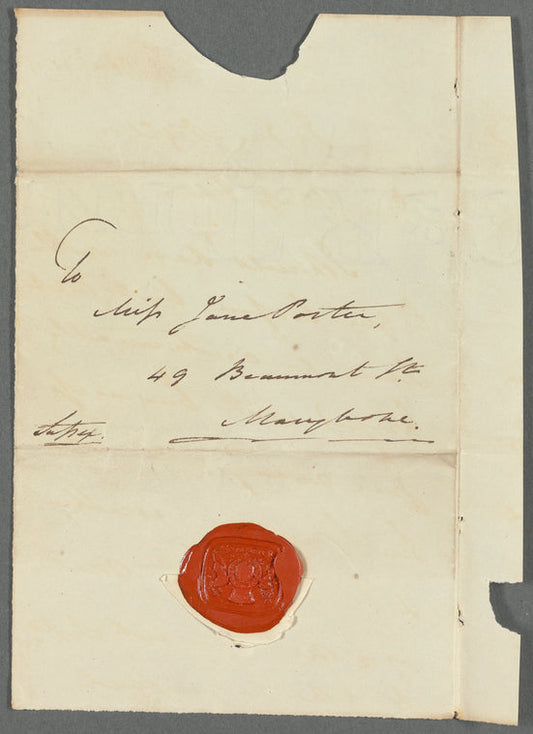 To
Miss Jane Porter,
49 Beaumont St.
Marybone.
Sussex.